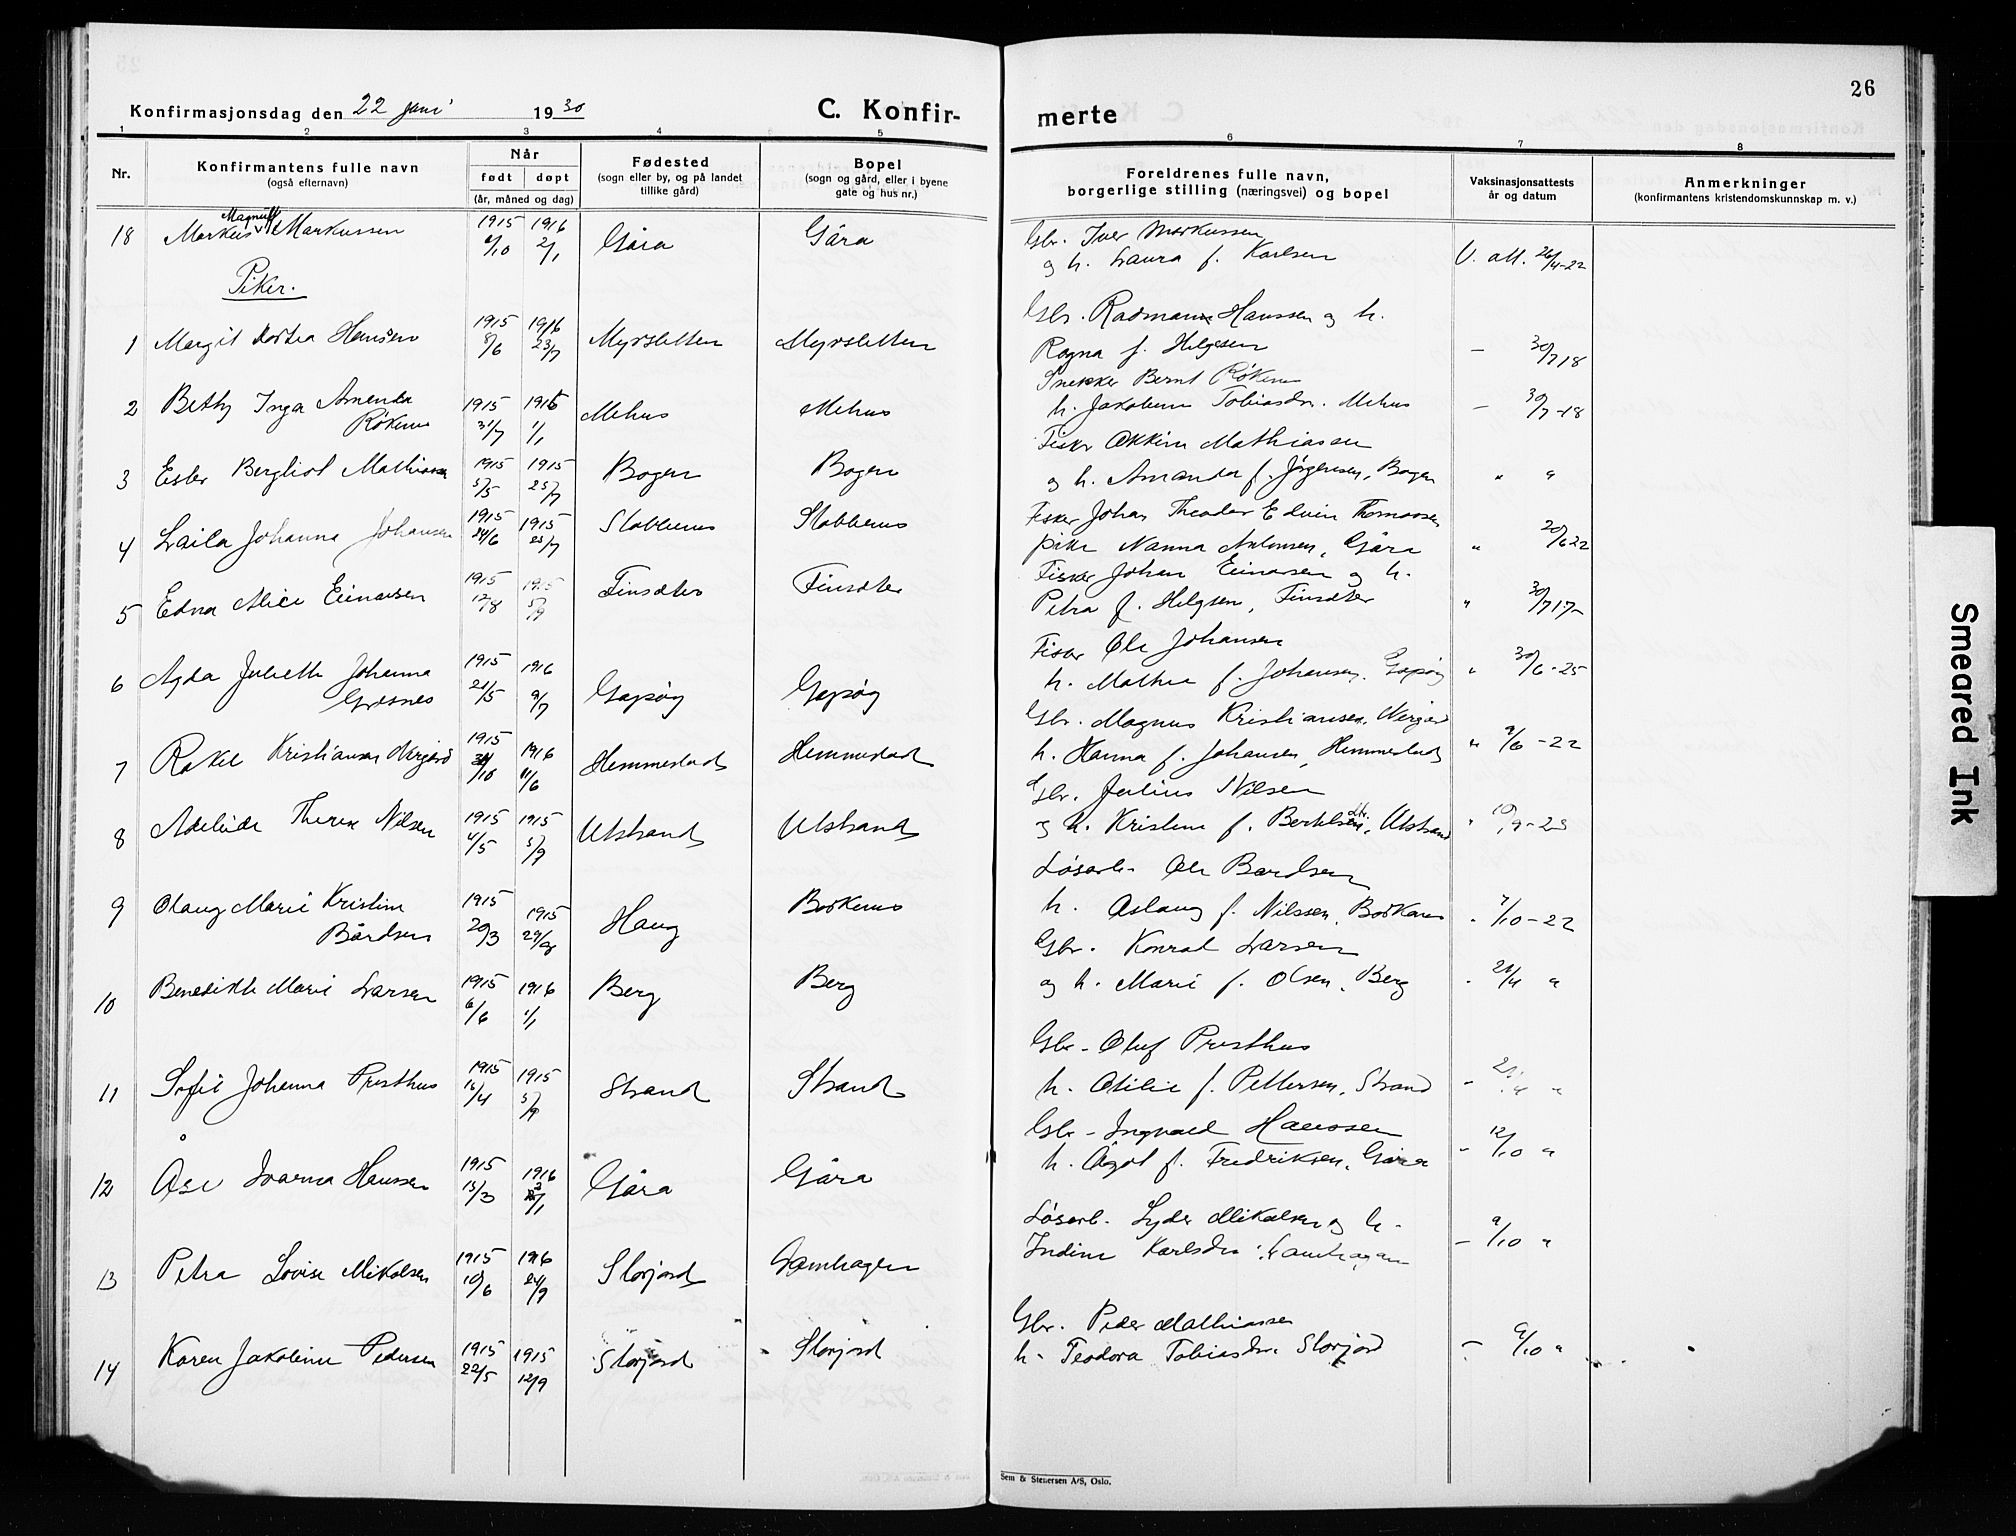 26
Konfirmasjonsdag den 22 juni 1930
C. Konfir-
merte
1 2 3 4 5 6 7 8
Nr.
Konfirmantens fulle navn
(også efternavn)
Når
født døpt
(år, måned og dag)
Fødested
(sogn eller by, og på landet
tillike gård)
Bopel
(sogn og gård, eller i byene
gate og hus nr.)
Foreldrenes fulle navn,
borgerlige stilling (næringsvei) og bopel
Vaksinasjonsattests
år og datum
Anmerkninger
(konfirmantens kristendomskunnskap m. v.)
18 Markus Markussen 1915 /10 1916 2/1 Gåra Gåra Gbr. Iver Markussen
og h. Laura f. Karlsen V. att. 26/4-22
Piker.
1 Margit Hansen 1915 8/6 1916 23/7 Myrsletten Myrsletten Gbr. Radmann Hanssen og h.
Ragna f. Helgesen - 30/7 18
2 Betty Inga Amenda
Røkenes 1915 31/7 1916 1/1 Mehus Mehus Snekker Bernt Røkenes
h. Jakobine Tobiasdr. Mehus - 30/7-18
3 Ester Bergliot Mathiassen 1915 5/5 1915 25/7 Bogen Bogen Fisker Mathiasen
og h. Amanda f. Jørgensen, Bogen " "
4 Laila Johanna Johansen 1915 24/6 1915 25/7 Slabbenes Slabbenes Fisker Johan Theodor Edvin Thomassen
pike Nanna Antonsen, Gåra " 20/6 22
5 Edna Alice Einarsen 1915 12/8 1915 5/9 Finsæter Finsæter Fisker Johan Einarsen og h.
Petra f. Helgsen, Finsæter " 30/7 17-
6 Agda Juliette Johanna
Grasnes 1915 21/5 1916 9/7 Gapøy Gapøy Fisker Ole Johansen
h. Mathea f. Johansen, Gapøy " 30/6-25
7 Rakel Kristiansen Nergård 1915 /10 1916 11/6 Hemmestad Hemmestad Gbr. Magnus Kristiansen, Nergård
h. Hanna f. Johansen, Hemmestad " 9/6-22
8 Adeleide Therese Nilsen 1915 4/5 1915 5/9 Utstrand Utstrand Gbr. Julius Nilsen
og h. Kristine f. Bertelsdtr., Utstrand " 10/9-23
9 Olaug Marie Kristine
Bårdsen 1915 20/3 1915 29/8 Haug Borkenes Løsarb. Ole Bardsen
h. Aslaug f. Nilssen, Borkenes " 7/10-22
10 Benedikte Marie Larsen 1915 6/6 1916 1/1 Berg Berg Gbr. Konrad Larsen
og h. Marie f. Olsen, Berg " 21/4 "
11 Sofie Johanna Presthus 1915 15/4 1915 5/9 Strand Strand Gbr - Oluf Presthus
h. Otilie f. Pettersen, Strand - /4 "
12 Åse Ivarna Hanssen 1915 15/3 1916 /1 Gåra Gåra Gbr - Ingvald Hanssen
h. Ågot f. Fredriksen, Gåra - 12/10 "
13 Petra Lovise Mikalsen 1915 10/6 1916 24/9 Storjord Lamhagen Løsarb. Lyder Mikalsen og h-
Indine Karlsdtr. Lamhagen - 9/10 "
14 Karen Jakobine Pedersen 1915 22/5 1915 12/9 Storjord Storjord Gbr. Peder Mathiassen
h- Teodora Tobiasdtr. Storjord - 9/10 "
Sem & Stenersen A/S, Oslo.
Smeared Ink